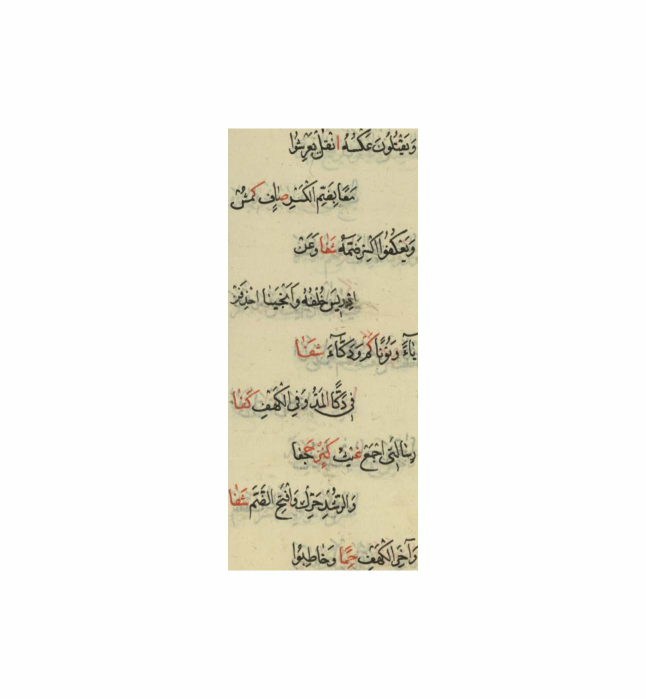 وَيَقْتُلُونَ عَكْسُهُ انْقُلْ يَعْرِشُوا
مَعًا بِضَمِّ الْكَسْرِ صَافٍ كَمْشُ
وَيَعْكُفُوا اكْسِرْ ضَمَّهُ شَفَا وَعَنْ
إِدْرِيسَ خُلْفُهُ وَأَنْجَيْنَا احْذِفَنْ
يَاءً وَنُونًا كَمْ وَدَكَّاءَ شَفَا
فِي دَكًّا الْمَدُّ وَفِي الْكَهْفِ كَفَا
رِسَالَتِي اجْمَعْ غَيْثَ كَنْزٍ حَجَفَا
وَالرُّشْدِ حَرِّكْ وَافْتَحِ الضَّمَّ شَفَا
وَآخِرَ الْكَهْفِ حِمًا وَخَاطَبُوا